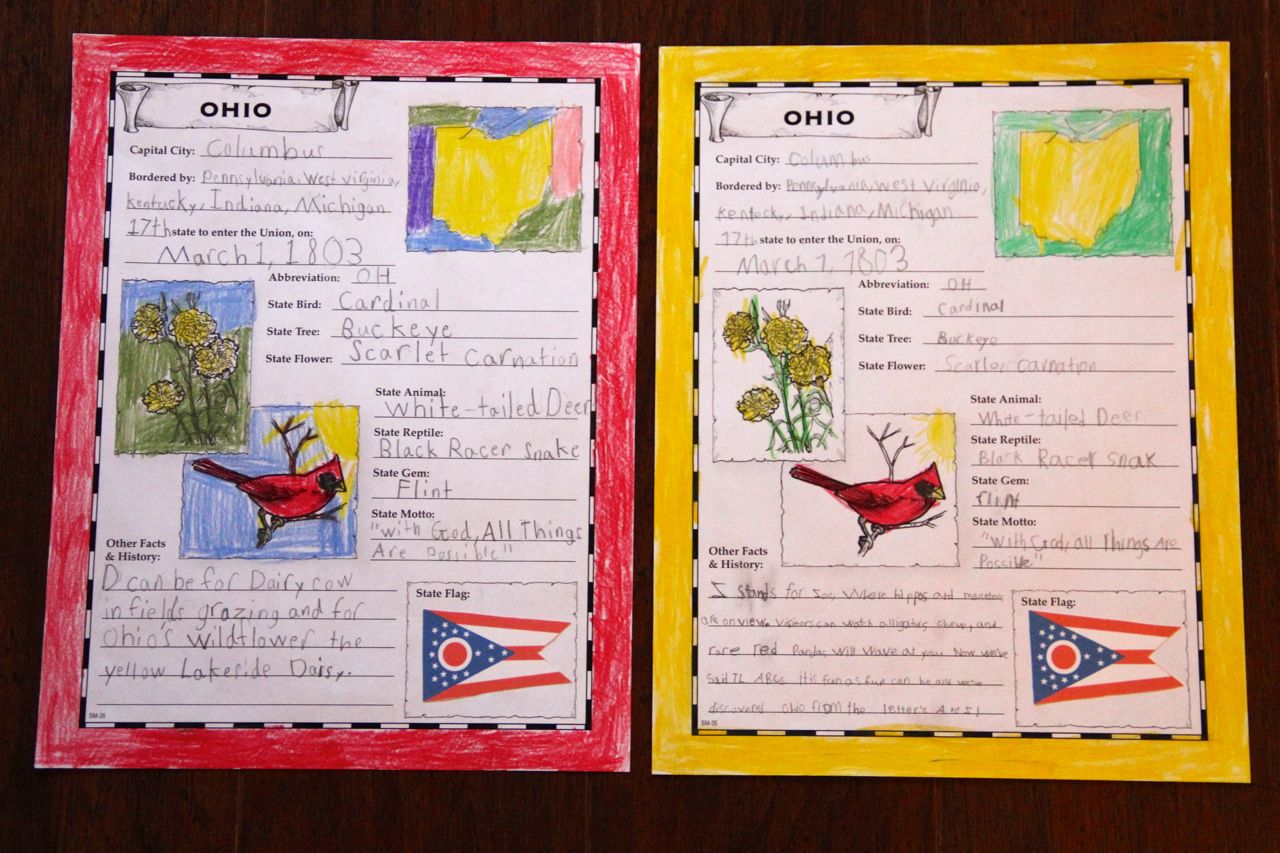 OHIO
Capital City: Columbus
Bordered by: Pennsylvania, West Virginia,
kentucky, Indiana, Michigan
17th state to enter the Union, on:
March 1, 1803
Abbreviation: OH
State Bird: Cardinal
State Tree: Buckeye
State Flower: Scarlet Carnation
State Animal:
White-tailed Deer
State Reptile:
Black Racer Snake
State Gem:
Flint
State Motto:
"with God, All Things
Are Possible"
Other Facts
& History:
D can be for Dairy cow
in fields grazing and for
Ohio's Wildflower the
yellow Lakeside Daisy.
State Flag:
SM-35
OHIO
Capital City: Columbus
Bordered by: Pennsylvania, West Virginia,
Kentucky, Indiana, Michigan
17th state to enter the Union, on:
March 1, 1803
Abbreviation: OH
State Bird: Cardinal
State Tree: Buckeye
State Flower: Scarlet Carnation
State Animal:
White-tailed Deer
State Reptile:
Black Racer Snak
State Gem:
Flint
State Motto:
"With God, all Things Are
Possible"
Other Facts
& History:
Z stands for Zoo, Where hippos and manatees
are on view. Visitors can watch alligators chew, and
rare red Pandas will wave at you. Now we've
said ABCs as fun as can be and we've
discovered Ohio from the letter's A to Z!
State Flag:
SM-35